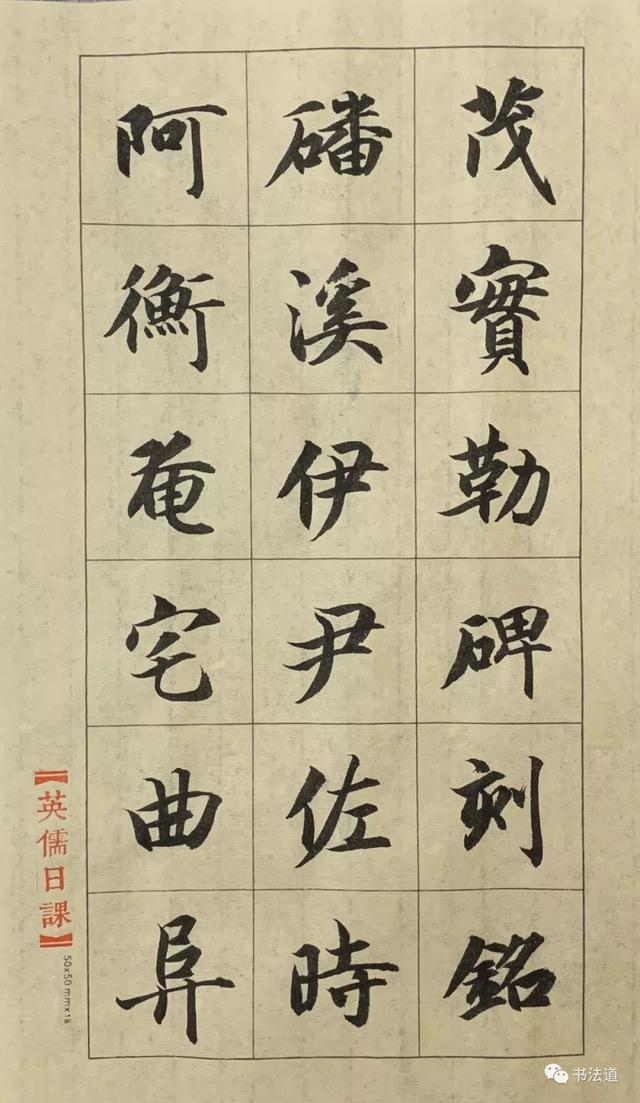 茂實勒碑刻銘
磻溪伊尹佐時
阿衡奄宅曲阜
【英儒日課】
50x50mmx18
书法道